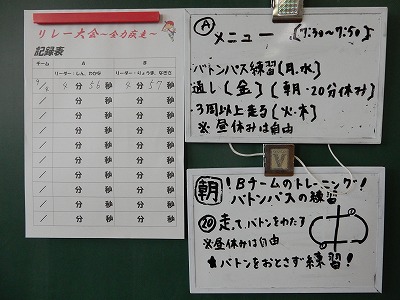 リレー大会～全力疾走～
記録表
チーム A B
リーダー：しん、わかな リーダー：りょうま、なぎさ
9/8 4分56秒 4分57秒
/ 分 秒 分 秒
/ 分 秒 分 秒
/ 分 秒 分 秒
/ 分 秒 分 秒
/ 分 秒 分 秒
/ 分 秒 分 秒
/ 分 秒 分 秒
Ⓐ メニュー (7:30～7:50)
・バトンパス練習(月.水)
・通し(金)(朝・20分休み)
・3周以上走る(火・木)
※昼休みは自由
朝！Bチームのトレーニング！
バトンパスの練習
⑳走って、バトンをわたす
※昼休みは自由
バトンをおとさず練習！